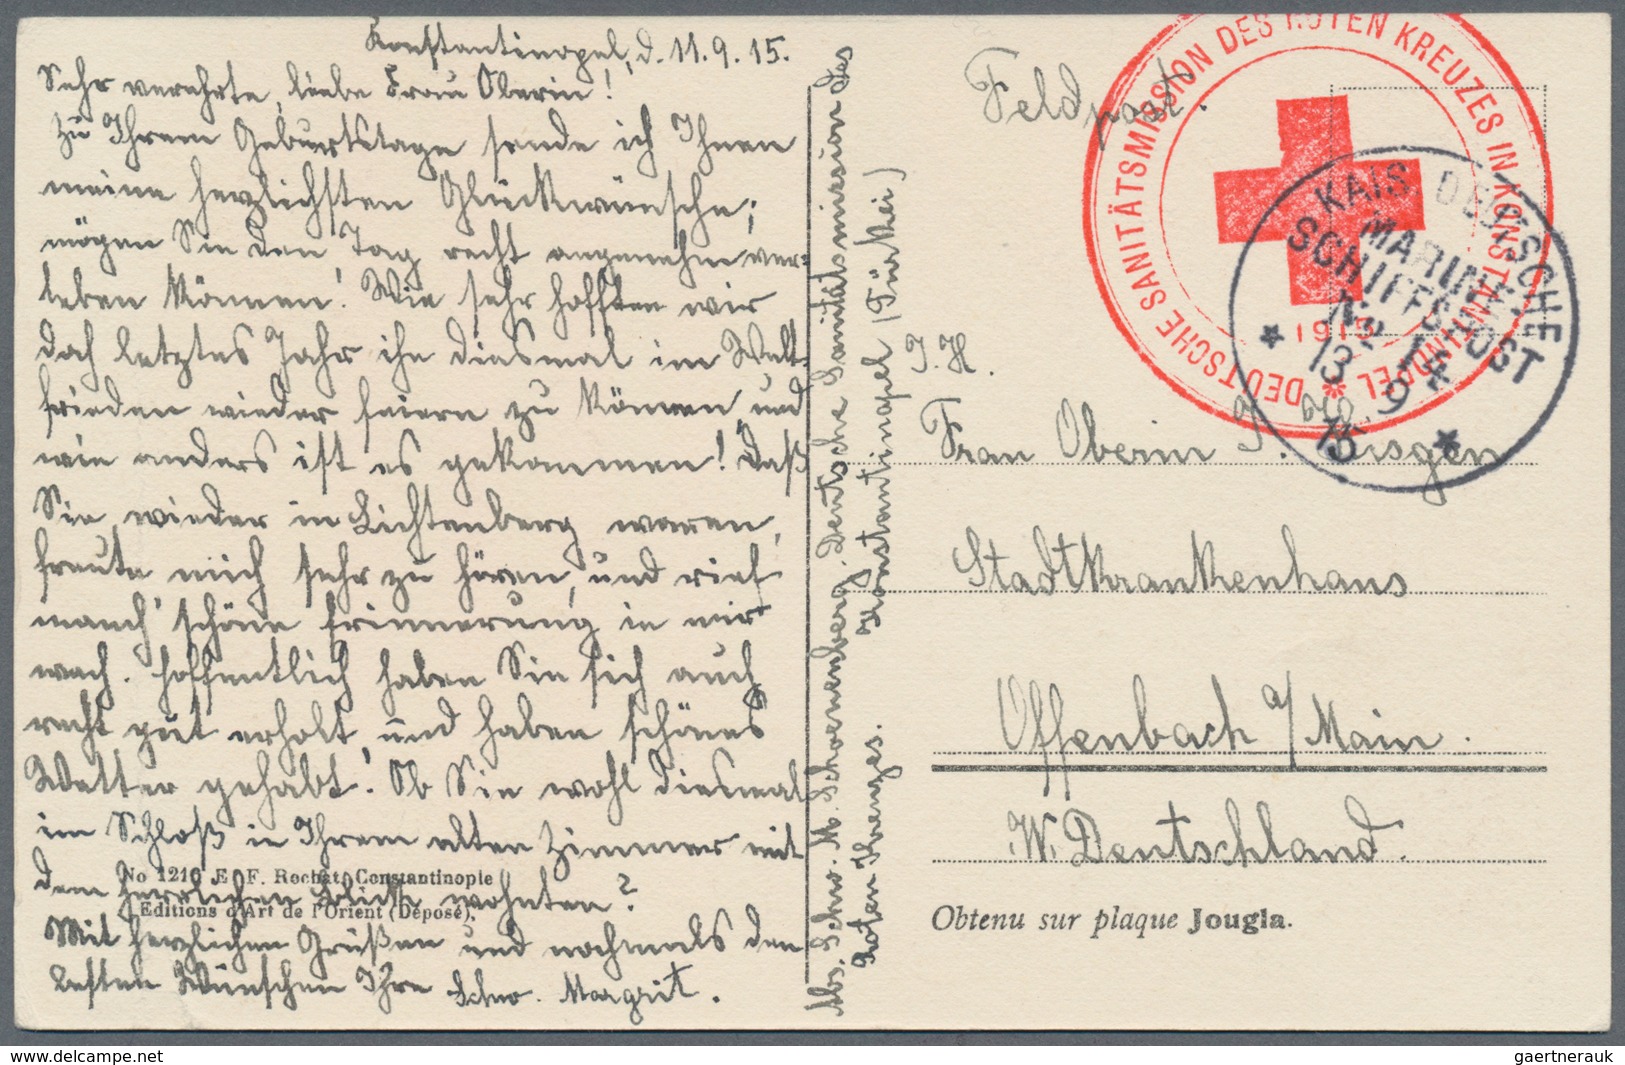 Konstantinopel, d. 11.9.15.
Sehr verehrte, liebe Frau Oberin!
Zu Ihrem Geburtstage sende ich Ihnen
meine herzlichsten Glückwünsche;
mögen Sie den Tag recht angenehm ver-
leben können! Wie sehr hofften wir
doch letztes Jahr ihn diesmal im Welt-
frieden wieder feiern zu können, und
wie anders ist es gekommen! Daß
Sie wieder in Lichtenberg waren,
freute mich sehr zu hören, und rief
manch' schöne Erinnerung in mir
wach. Hoffentlich haben Sie sich auch
recht gut erholt, und haben schönes
Wetter gehabt! Ob Sie wohl diesmal
im Schloß in Ihrem alten Zimmer mit
dem herrlichen Blick wohnten?
Mit herzlichen Grüßen und nochmals den
besten Wünschen Ihre Schw. Margrit.
No 1210 E. F. Rochat, Constantinople
Editions d'Art de l'Orient (Déposé).
Abs. Schw. M. Schoenenberg. Deutsche Sanitätsmission des
Roten Kreuzes. Konstantinopel (Türkei)
Feldpost.
DEUTSCHE SANITÄTSMISSION DES ROTEN KREUZES IN KONSTANTINOPEL
1915
KAIS. DEUTSCHE
MARINE-
SCHIFFSPOST
No 14
13.9.
15
I. H.
Frau Oberin
Stadtkrankenhaus
Offenbach a/Main.
W. Deutschland.
Obtenu sur plaque Jougla.
www.delcampe.net
gaertnerauk